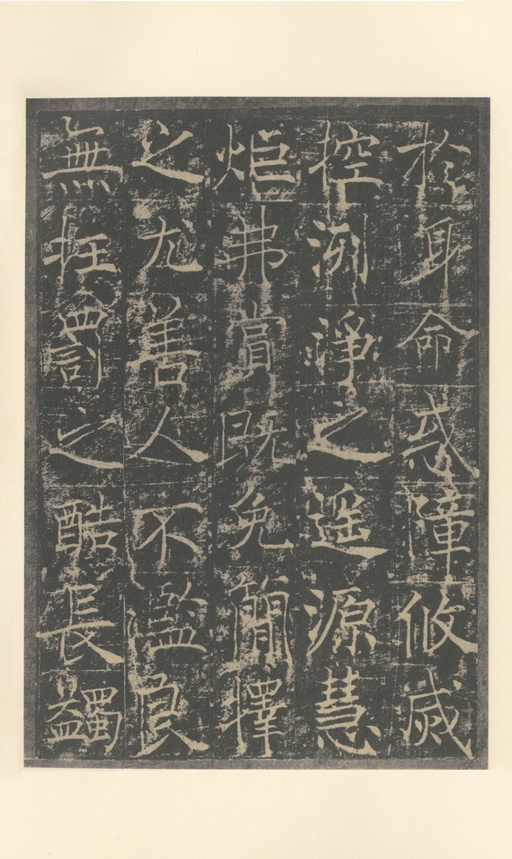 捨身命惑障攸烕
控洌淨之遥源慧
炬弗賞既免簡擇
之尤善人不濫良
無抂罰之酷長蠲